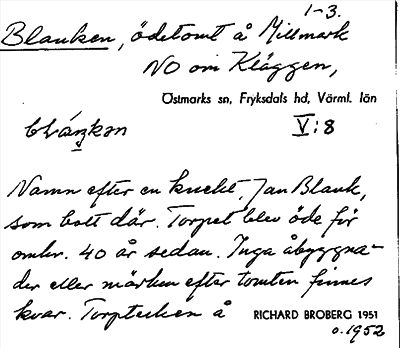 1-3.
Blanken, ödetomt å Millmark
NO om Kläggen,
Östmarks sn, Fryksdals hd, Värml. län
V:8
Namn efter en knekt, Jan Blank,
som bott där. Torpet blev öde för
omkr. 40 år sedan. Inga åbyggna-
der eller märken efter tomten finnes
kvar. Torptecken å
RICHARD BROBERG 1951
o. 1952